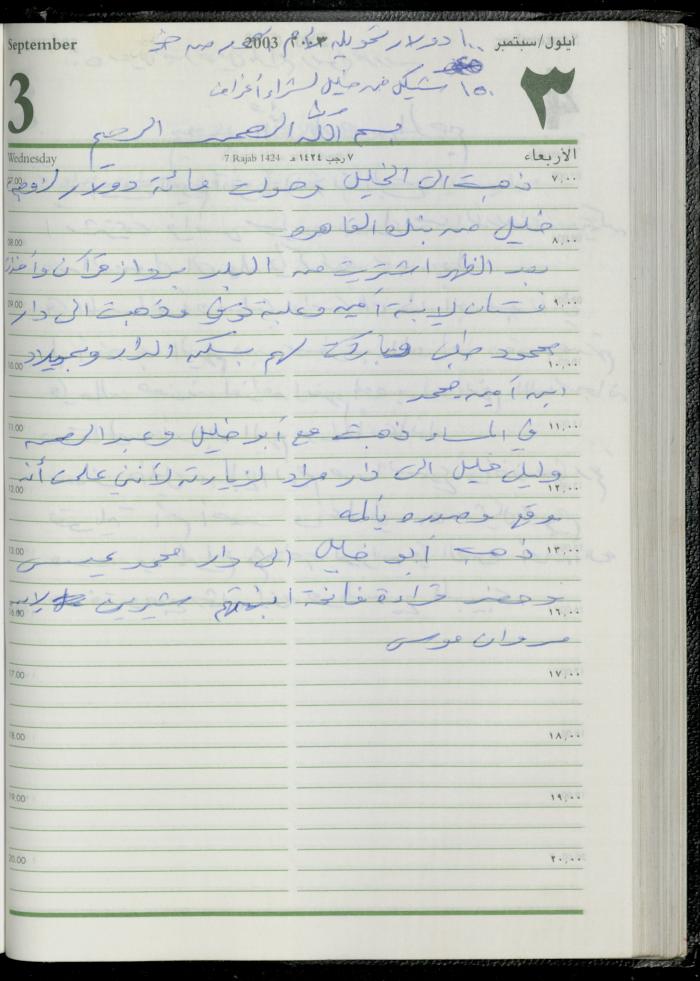 September 2003 ٢٠٠٣ أيلول/سبتمبر
١٠٠ دولار تحويله
١٥٠ شيكل من خليل لشراء أغراض
3 ٣
بسم الله الرحمن الرحيم
Wednesday 7 Rajab 1424 ٧ رجب ١٤٢٤ هـ الأربعاء
07.00 ذهبت الى الخليل وحولت مائة دولار ٧,٠٠
خليل من بنك القاهرة
08.00 ٨,٠٠
بعد الظهر اشتريت من البلد برواز قرآن
09.00 فستان لابنة أمين وعلبة وذهبت الى دار ٩,٠٠
محمود وباركت لهم بسكن الدار وبميلاد
10.00 ١٠,٠٠
ابن أمين محمد
11.00 في المساء ذهبت مع أبو خليل وعبد الرحمن ١١,٠٠
وليلى خليل الى دار مراد لزيارته لأنني علمت أنه
12.00 ١٢,٠٠
وقع وصدره يألمه
13.00 ذهب أبو خليل الى دار محمد عيسى ١٣,٠٠
وحضر قراءة فاتحة ابنتهم شيرين لابن
16.00 ١٦,٠٠
مروان موسى
17.00 ١٧,٠٠
18.00 ١٨,٠٠
19.00 ١٩,٠٠
20.00 ٢٠,٠٠